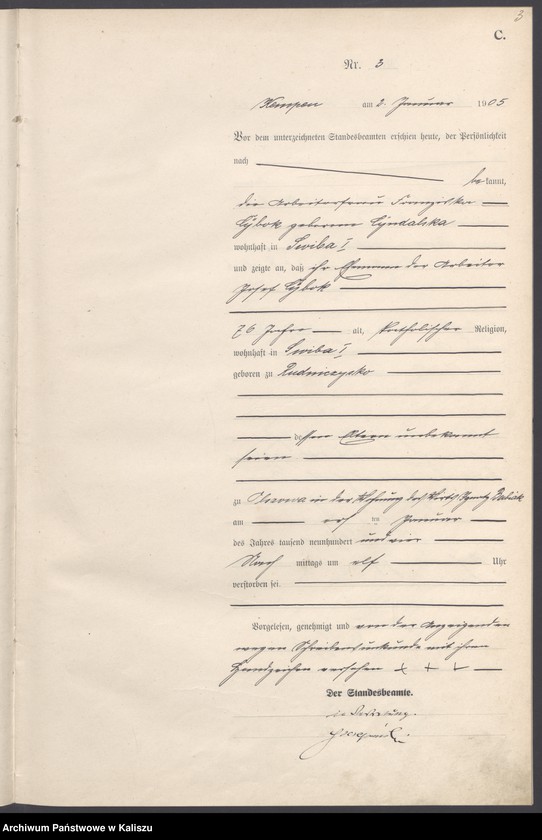 3
C.
Nr. 3
Kempen am 2. Januar 1905
Vor dem unterzeichneten Standesbeamten erschien heute, der Persönlichkeit
nach
bekannt,
die Arbeiterfrau Franziska
Cybok geborene Cyndalska
wohnhaft in Swiba I
und zeigte an, daß ihr Ehemann der Arbeiter
Josef Cybok
76 Jahre alt, katholischer Religion,
wohnhaft in Swiba I
geboren zu Rudniczysko
dessen Eltern unbekannt
seien
zu in der Wohnung des Wirts Ignatz
am ersten Januar
des Jahres tausend neunhundert und vier
Nach mittags um elf Uhr
verstorben sei.
Vorgelesen, genehmigt und von der Anzeigenden
wegen Schreibensunkunde mit ihrem
Handzeichen versehen + + +
Der Standesbeamte.
in Vertretung.
Archiwum Państwowe w Kaliszu